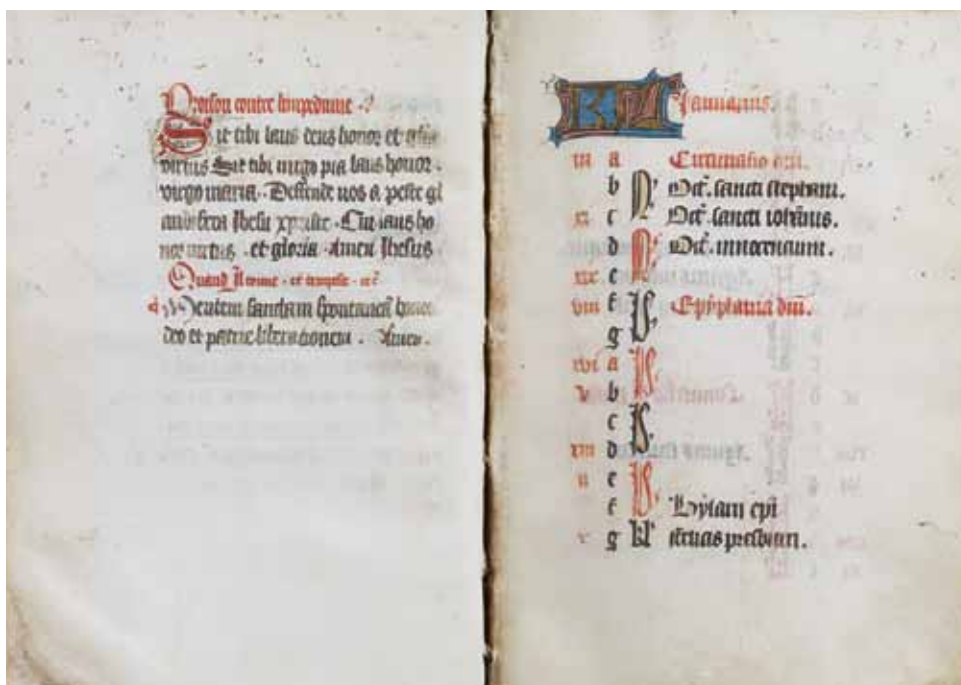 Oroison contre limpedimie .
Sit tibi laus deus honor et glia
virtus Sit tibi virgo pia laus honor .
virgo maria . Deffende nos a peste gl
andifera Jhesu xpriste . Cui laus ho
nor virtus . et gloria Amen Jhesus
Quand Il tonne . et tempeste
Mentem sanctam spontaneam honorem
deo et patrie liberationem . Amen .
KL Januarius .
iii a Circumcisio dni .
b N Oct . sancti stephani .
xi c Oct . sancti iohannis .
d N Oct . innocentium .
xix e
viii f V Epyphania dni .
g
xvi a V
v b
c V
xiii d
ii e V
f Hylarii epi
x g k felicis presbiteri .